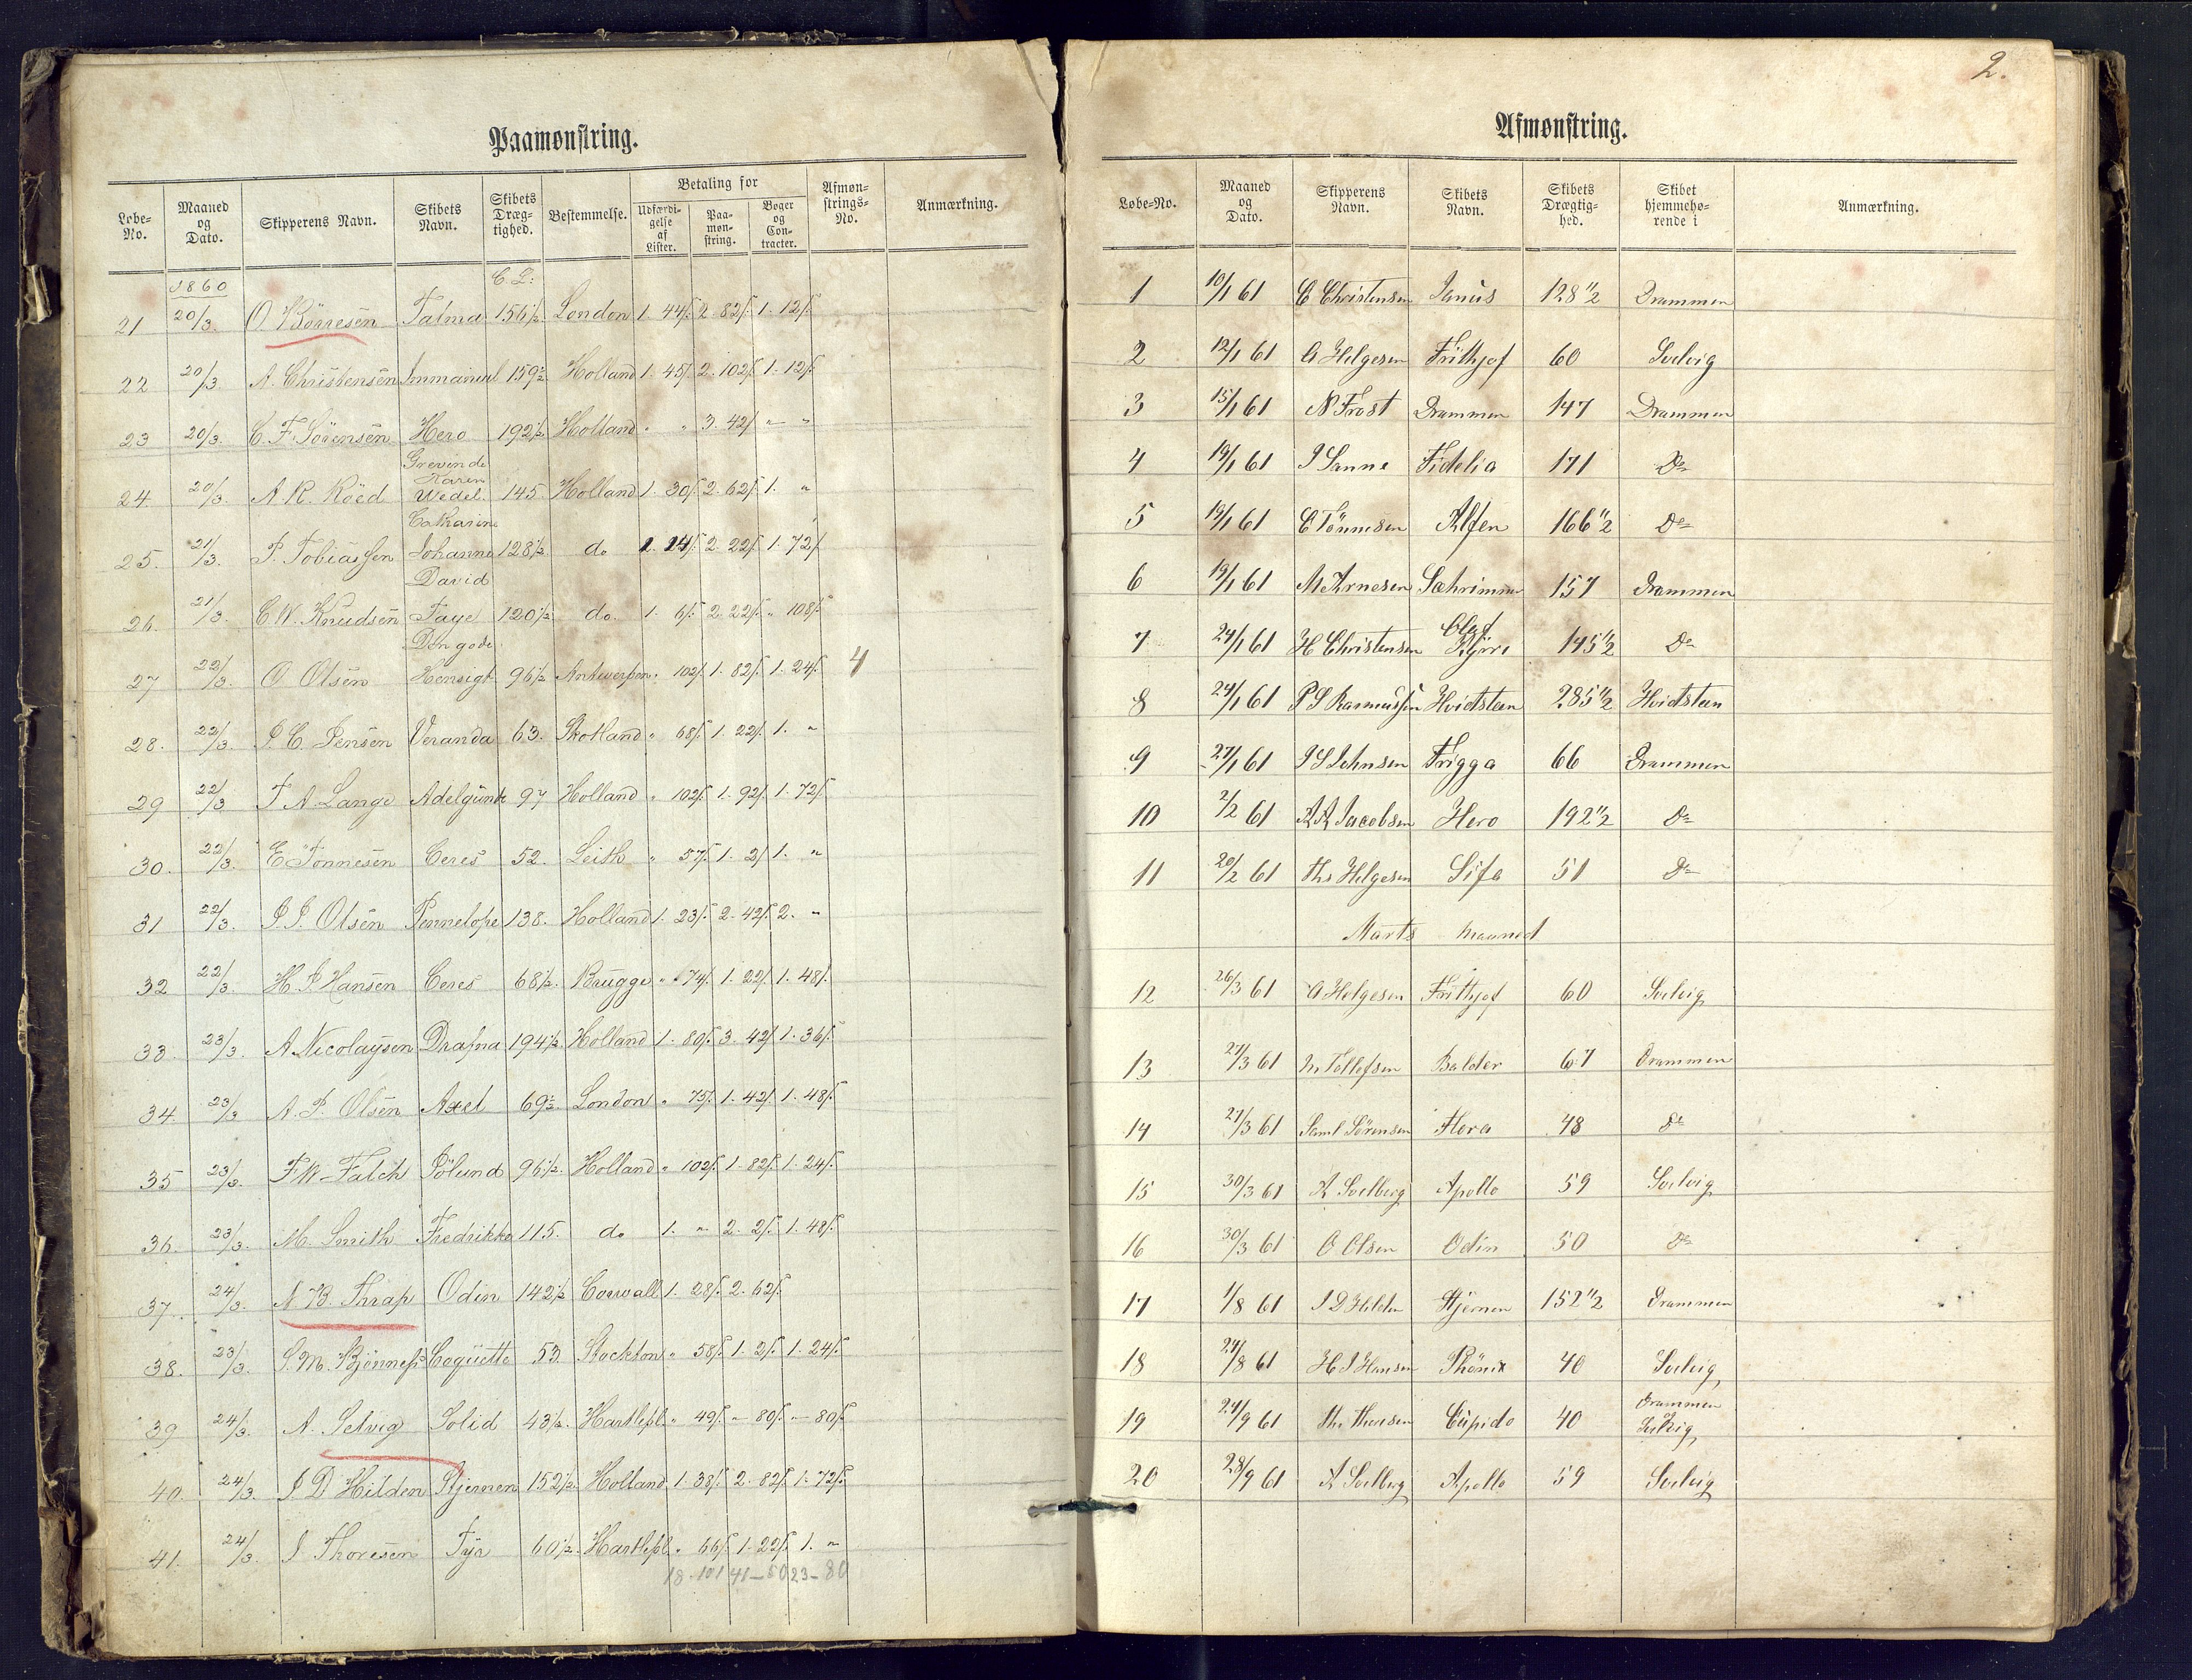 Paamønstring.
Løbe-No. Maaned og Dato. Skipperens Navn. Skibets Navn. Skibets Dræg-tighed. Bestemmelse. Betaling for Udfærdi-gelse af Lister. Paa-møn-string. Bøger og Con-tracter. Afmøn-strings-No. Anmærkning.
1860 C. L:
21 20/3. O Börresen Talma 156 1/2 London 1. 44 2. 82 1. 12
22 20/3 A. Christensen Immanuel 159 1/2 Holland 1. 45 2. 102 1. 12
23 20/3. C. F. Sörensen Hero 192 1/2 Holland " " 3. 42 " "
Grevinde
Karen
24. 20/3. A. R. Röed Wedel. 145 Holland 1. 30 2. 62 1. "
Catharine
25. 21/3. P. Tobiassen Johanne 128 1/2 do 1. 14 2. 22 1. 72
David
26. 21/3. C W. Knudsen Faye 120 1/2 do. 1. 6 2. 22 " 108
Den gode
27 22/3. O Olsen Hensigt 96 1/2 Antwerpen " 102 1. 82 1. 24 4
28. 22/3. P. C. Jensen Veranda 63. Skotland " 68 1. 22 1. "
29 22/3 F A Lange Adelgunde 97 Holland " 102 1. 92 1. 72
30. 22/3. E Tönnesen Ceres 52. Leith " 57 1. 2 1. "
31 22/3. J. J. Olsen Pennelope 138. Holland 1. 23 2. 42 2. "
32 22/3. H. J Hansen Ceres 68 1/2. Brugge " 74 1. 22 1. 48
33. 23/3. A Nicolaysen Drafna 194 1/2 Holland 1. 80 3. 42 1. 36
34. 23/3 A. P. Olsen Axel 69 1/2 London " 75 1. 42 1. 48
35 23/3. F W Falch Pölund 96 1/2. Holland " 102 1. 82 1. 24
36. 23/3. M. Smith Fredrikke 115. do 1. " 2. 2 1. 48
37. 24/3. A. B. Thrap Odin 142 1/2 Corwall 1. 28 2. 62
38. 23/3. S. M. Bjönness Coquette 53. Stockton " 58 1. 2 1. 24
39 24/3. A. Selvig Solid 43 1/2. Hartlepl. " 49 " 80 " 80
40. 24/3. J D Hilden Stjernen 152 1/2. Holland 1. 38 2. 82 1. 72
41. 24/3. J Thoresen Fyr 60 1/2. Hartlepl. " 66 1. 22 1. "
18-101 41-50 23-80
2.
Afmønstring.
Løbe-No. Maaned og Dato. Skipperens Navn. Skibets Navn. Skibets Drægtig-hed. Skibet hjemmehø-rende i Anmærkning.
1 10/1 61 C Christensen Janus 128 1/2 Drammen
2 12/1 61 A Helgesen Frithjof 60 Svelvig
3 15/1 61 N Frost Drammen 147 Drammen
4 19/1 61 J Sanne Fidelia 171 Do
5 19/1 61 E Tönnesen Alfen 166 1/2 Do
6 19/1 61 M Arnesen Sæhrimner 157 Drammen
7 24/1 61 H Christensen Olaf Kyrre 145 1/2 Do
8 24/1 61 P S Rasmussen Hvidsteen 285 1/2 Hvidsteen
9 27/1 61 J S Johnsen Frigga 66 Drammen
10 2/2 61 A A Jacobsen Hero 192 1/2 Do
11 20/2 61 Ths Helgesen Sifa 51 Do
Marts Maaned
12 26/3 61 A Helgesen Frithjof 60 Svelvig
13 27/3 61 M Tollefsen Balder 67 Drammen
14 27/3 61 Saml Sörensen Flora 48 Do
15 30/3 61 A Soelberg Apollo 59 Svelvig
16 30/3 61 O Olsen Odin 50 Do
17 1/8 61 J D Hilden Stjernen 152 1/2 Drammen
18 24/8 61 H J Hansen Phönix 40 Svelvig
19 24/9 61 Th. Thoresen Cupido 40 Drammen Svelvig
20 28/9 61 A Soelberg Apollo 59 Svelvig